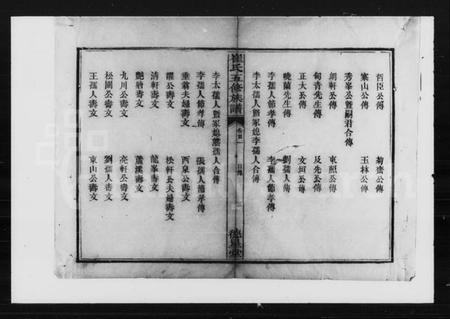 哲臣公傳 菊麓公傳
東山公傳 玉林公傳
秀峯公暨嗣君合傳
朗軒公傳 東照公傳
旬青先生傳 及先公傳
正大公傳 文垣公傳
曉蘭先生傳 劉孺人傳
李孺人節孝傳 李孺人節孝傳
李太孺人暨冢媳李孺人合傳
崔氏五修族譜 卷首 目錄 德星堂
李太孺人暨冢媳龍孺人合傳
李孺人節孝傳 張孺人節孝傳
垂翁夫婦壽文 西泉公壽文
耀公壽文 松軒公夫婦壽文
清軒壽文 龍峯壽文
艷齋壽文 蘆溪壽文
九川公壽文 亮軒公壽文
松園公壽文 劉孺人壽文
王孺人壽文 東山公壽文